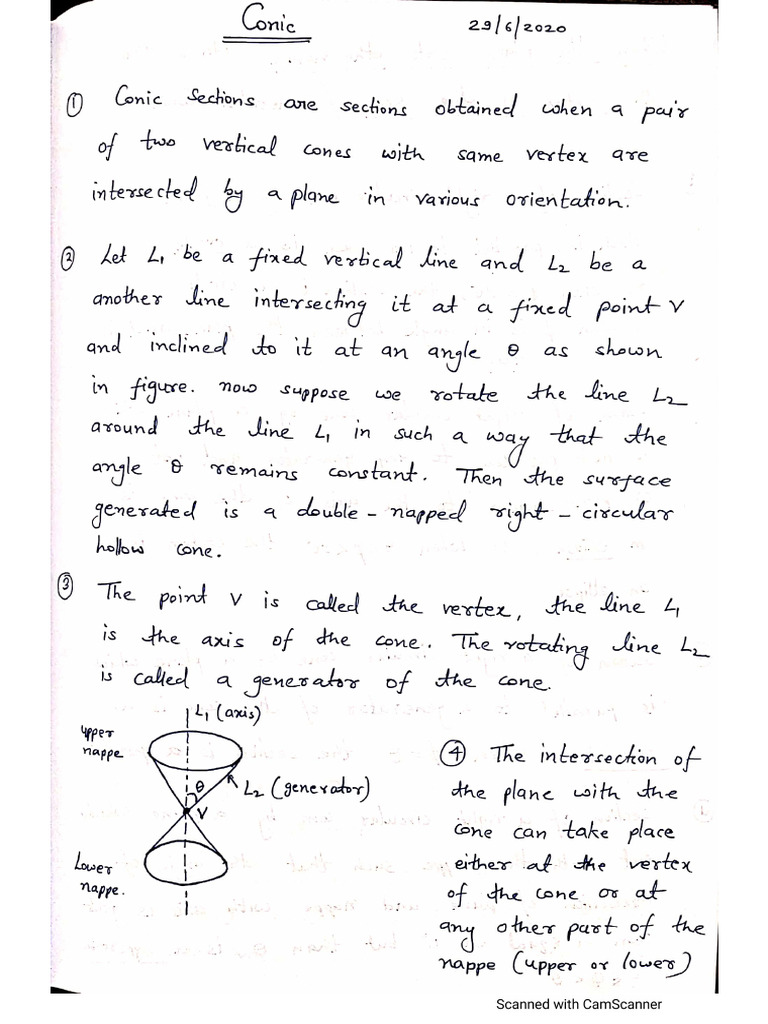 Conic
29/6/2020
① Conic Sections are sections obtained when a pair
of two vertical cones with same vertex are
intersected by a plane in various orientation.
② Let L₁ be a fixed vertical line and L₂ be a
another line intersecting it at a fixed point V
and inclined to it at an angle θ as shown
in figure. now suppose we rotate the line L₂
around the line L₁ in such a way that the
angle θ remains constant. Then the surface
generated is a double-napped right-circular
hollow cone.
③ The point V is called the vertex, the line L₁
is the axis of the cone. The rotating line L₂
is called a generator of the cone.
L₁ (axis)
upper
nappe
θ
L₂ (generator)
V
Lower
nappe.
④ The intersection of
the plane with the
cone can take place
either at the vertex
of the cone or at
any other part of the
nappe (upper or lower)
Scanned with CamScanner